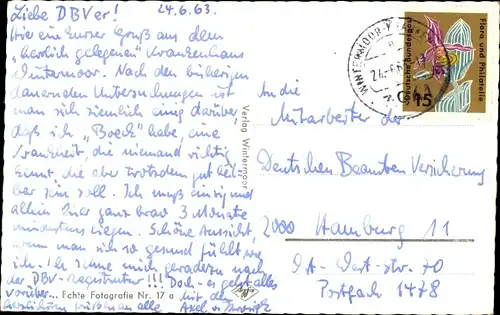 Liebe DBVer! 24.6.63.
Hier ein kurzer Gruß aus dem
"herrlich gelegenen" Krankenhaus
Wintermoor. Nach den bisherigen
dauernden Untersuchungen ist
man sich ziemlich einig darüber,
daß ich "Boeck" habe, eine
Krankheit, die niemand richtig
kennt, die aber trotzdem gut heil-
bar sein soll. Ich muß einsig und
allein hier ganz brav 3 Monate
mindestens liegen. Schöne Aussicht,
wenn man sich so gesund fühlt wie
ich. Ich sehne mich geradezu nach
der DBV-Registratur!!! Doch - es geht alles
vorüber...
mit den
Axel v.
Echte Fotografie Nr. 17 a
Verlag Wintermoor
WINTERMOOR
Flora und Philatelie
Deutsche Bundespost
15
An die
Mitarbeiter der
Deutschen Beamten Versicherung
2000 Hamburg 11
Ost-West-Str. 70
Postfach 1478